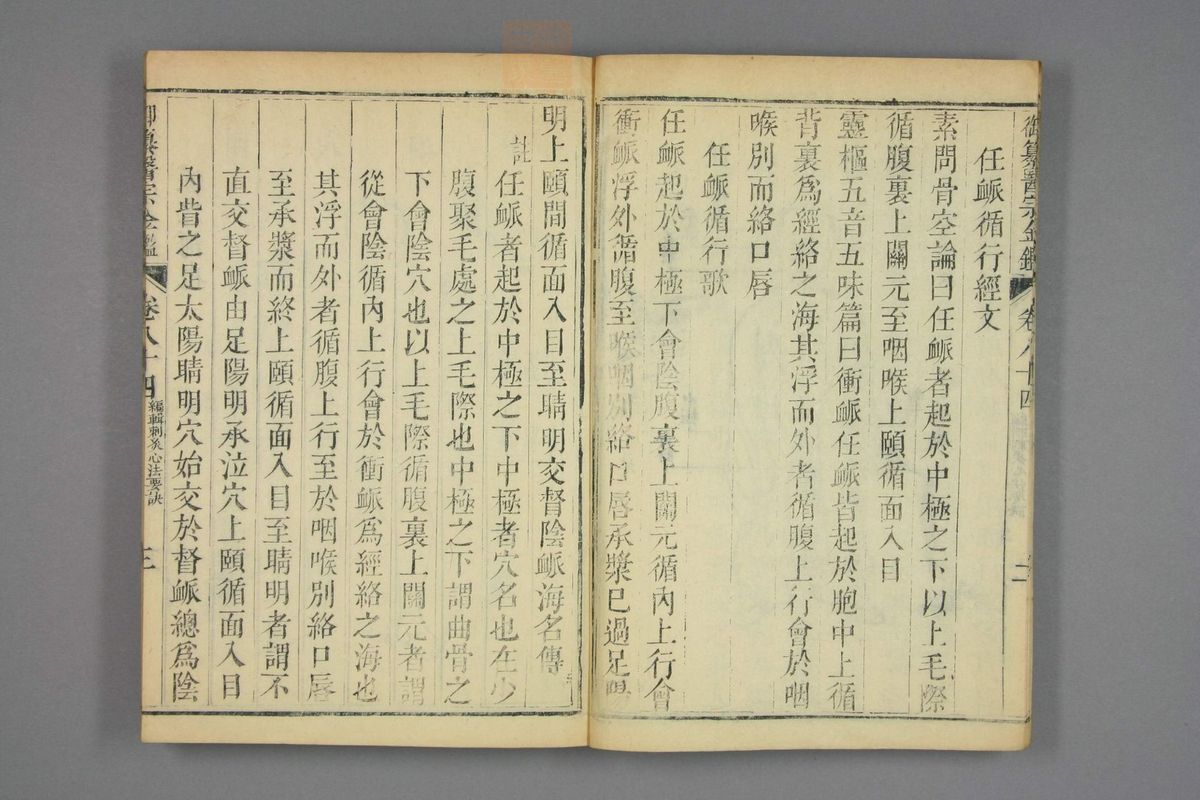 御纂醫宗金鑑 卷八十四 二
任衇循行經文
素問骨空論曰任衇者起於中極之下以上毛際
循腹裏上關元至咽喉上頤循面入目
靈樞五音五味篇曰衝衇任衇皆起於胞中上循
背裏爲經絡之海其浮而外者循腹上行會於咽
喉別而絡口唇
任衇循行歌
任衇起於中極下會陰腹裏上關元循內上行會
衝衇浮外循腹至喉咽別絡口唇承漿已過足陽
明上頤間循面入目至睛明交督陰衇海名傳
註
任衇者起於中極之下中極者穴名也在少
腹聚毛處之上毛際也中極之下謂曲骨之
下會陰穴也以上毛際循腹裏上關元者謂
從會陰循內上行會於衝衇爲經絡之海也
其浮而外者循腹上行至於咽喉別絡口唇
至承漿而終上頤循面入目至睛明者謂不
直交督衇由足陽明承泣穴上頤循面入目
內眥之足太陽睛明穴始交於督衇總爲陰
御纂醫宗金鑑 卷八十四 編輯刺灸心法要訣 三